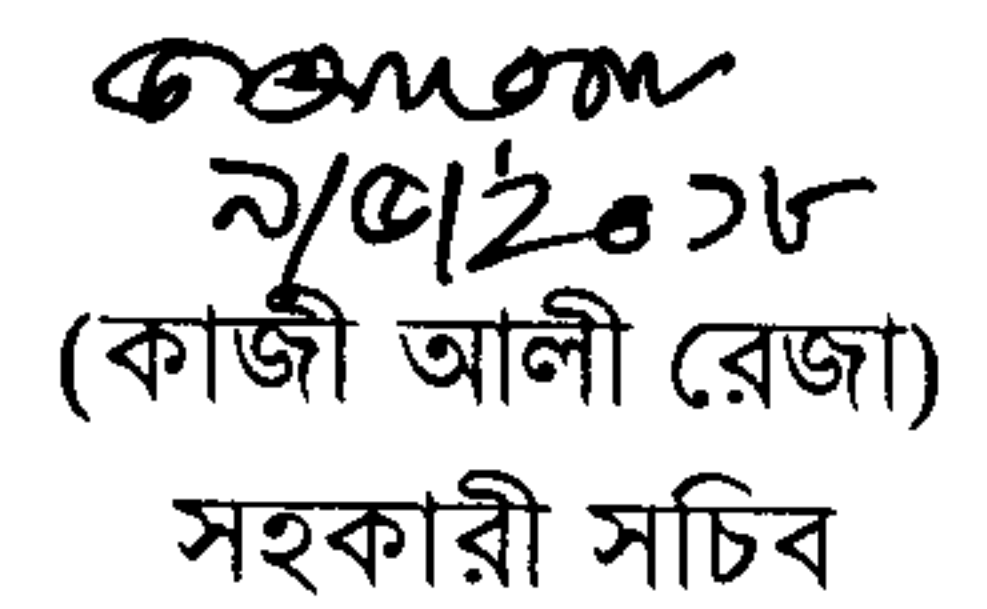 ৯/৫/২০১৮
(কাজী আলী রেজা)
সহকারী সচিব